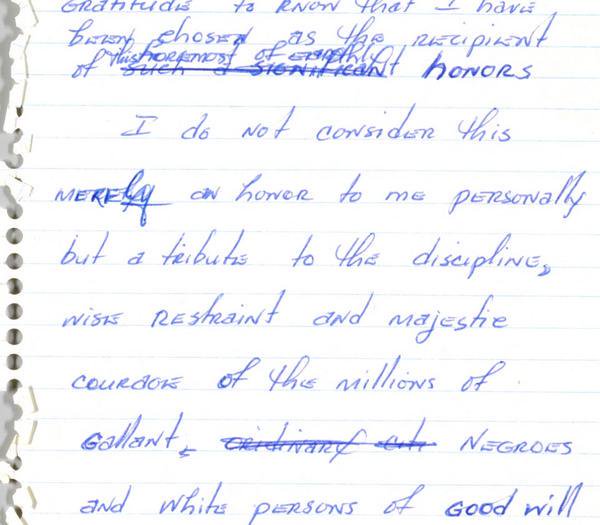 GRATITUDE to KNOW that I have
been chosen as the RECIPIENT
this foremost of earthly
of such a significant honors
I do not consider this
merely an honor to me personally
but a tribute to the discipline,
wise restraint and majestic
courage of the millions of
Gallant, ordinary NEGROES
and white persons of GOOD will